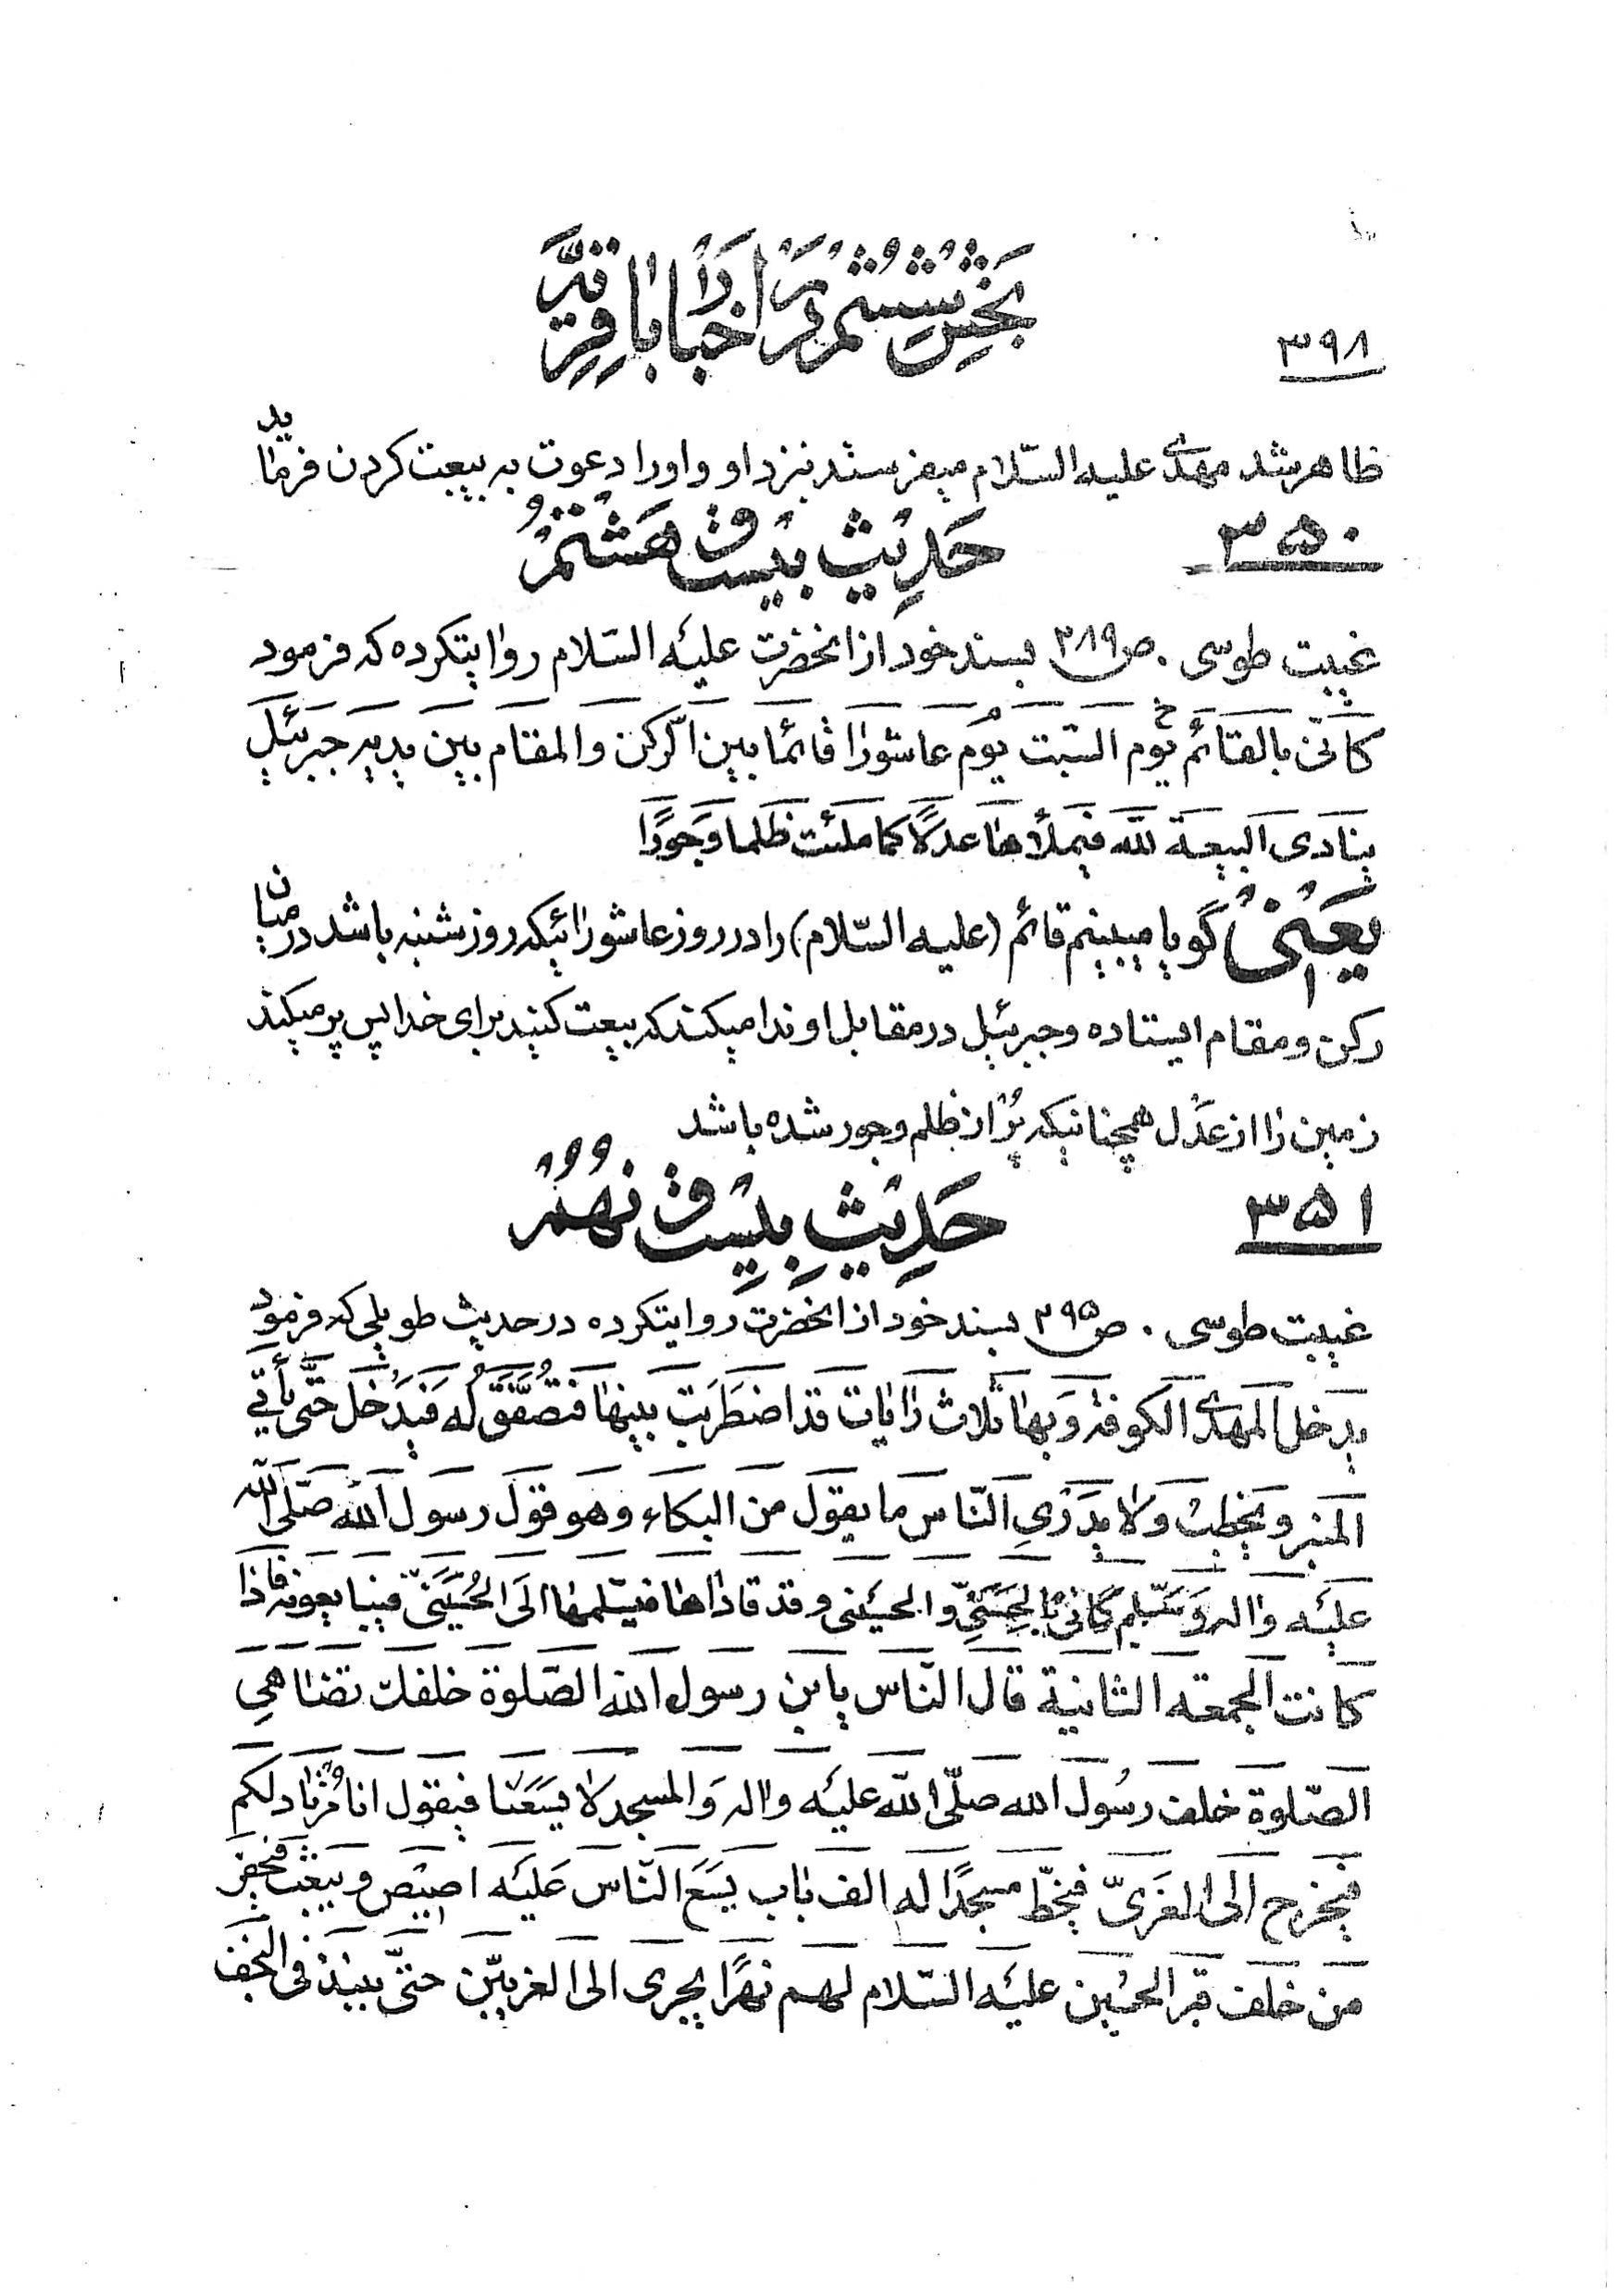 بخش ششم در اخبار باقریه
۳۹۸
ظاهر شد مهدی علیه السّلام میفرستد نزد او و او را دعوت به بیعت کردن فرماید
۳۵۰
حَدِیْث بیست و هَشتُم
غیبت طوسی . ص۳۸۹ بسند خود از انحضرت علیه السّلام روایتکرده که فرمود
کانّی بالقائم یوم السّبت یوم عاشورا قائما بین الرّکن و المقام بین یدیه جبرئیل
ینادی البیعة للّه فیملأها عدلًا کما ملئت ظلما و جورًا
یَعنی گویا میبینم قائم (علیه السّلام) را در روز عاشورائیکه روز شنبه باشد در میان
رکن و مقام ایستاده و جبرئیل در مقابل او ندا میکند که بیعت کنید برای خدا پس پر میکند
زمین را از عَدل همچنانیکه پُر از ظلم و جور شده باشد
۳۵۱
حَدِیْثِ بِیست و نُهُم
غیبت طوسی . ص۳۹۵ بسند خود از انحضرت روایتکرده در حدیث طویلی که فرمود
یدخل المهدی الکوفه وَ بها ثلاث رایات قد اضطَرَبَت بینها فتصُفَّق لُه فَیَدخُل حَتّی یأتی
المنبر و یخطب وَ لا یَدرِی النّاس ما یقول من البکاء و هو قول رسول اللّه صَلّی اللّه
علیه و اله وَ سَلّم کانّی بالحَسَنیّ و الحسینی و قد قاداها فیسّلمها الَی الحُسَینیّ فیبایعونه فاذا
کانت الجمعه الثانیة قال النّاس یابن رسول الله الصّلوة خلفک تضاهی
الصّلوة خلف رسُول الله صلّی اللّه علیه و اله وَ المسجد لا یسَعنا فیقول انا مُرتاد لکم
فیخرج الی الغَریّ فیخطّ مسجدًا له الف باب یسَع النّاس عَلیه اصیص و یبعث فیحفر
من خلف قبر الحسین علیه السّلام لهم نهرًا یجری الی الغریّین حتّی ینبذ فی النجف